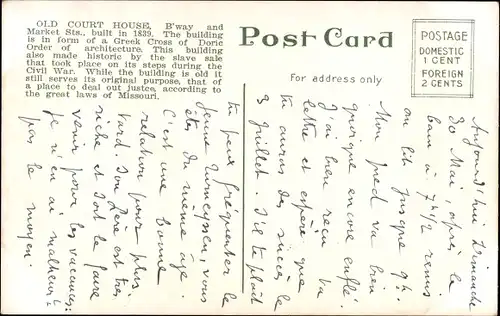 OLD COURT HOUSE, B'way and
Market Sts., built in 1839. The building
is in form of a Greek Cross of Doric
Order of architecture. This building
also made historic by the slave sale
that took place on its steps during the
Civil War. While the building is old it
still serves its original purpose, that of
a place to deal out justice, according to
the great laws of Missouri.
Post Card
For address only
POSTAGE
DOMESTIC
1 CENT
FOREIGN
2 CENTS
Aujourd'hui Dimanche
30 Mai, après le
bain à 7h 1/2 remis
au lit jusque 9h.
Mon pied va bien
quoique encore enflé.
J'ai bien reçu ta
lettre et espère que
tu auras des succès le
3 juillet. S'il te plait
tu peux fréquenter le
jeune vous
êtes du même âge.
C'est une bonne
relation pour plus
tard. Son père est très
riche et sort le faire
venir pour les vacances;
je n'en ai malheur t
pas le moyen.